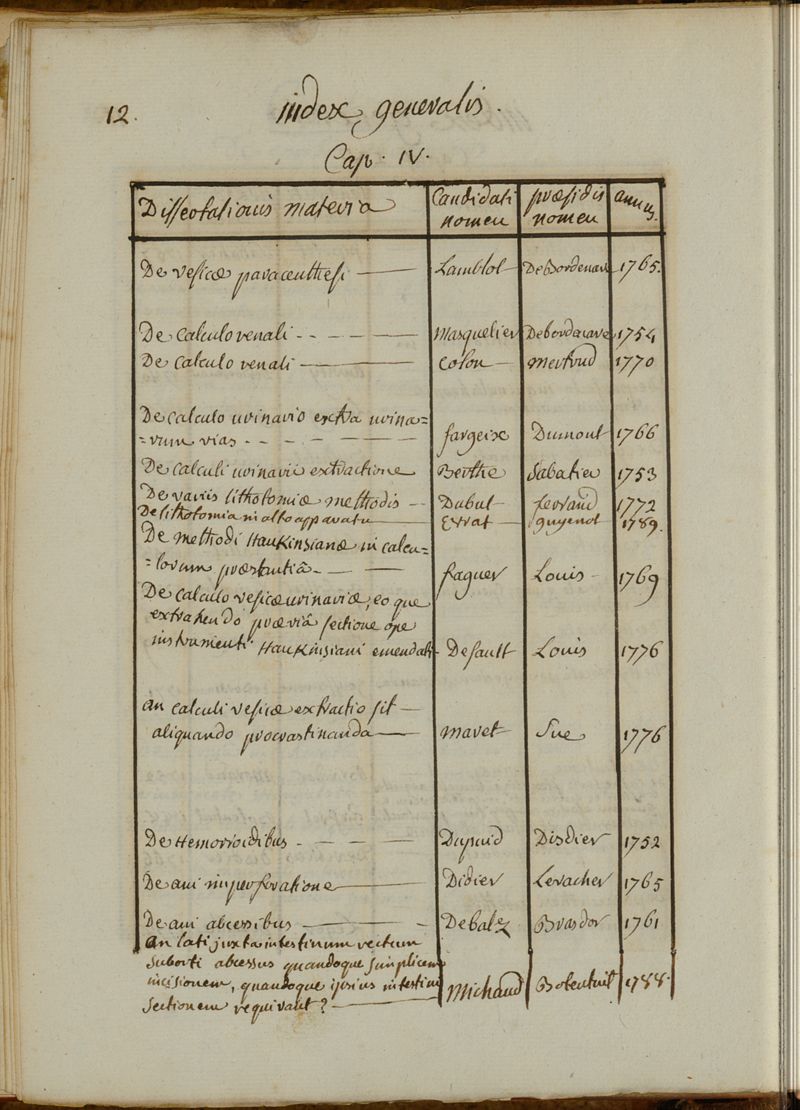 12.
index generalis.
Cap. IV.
Dissertationis materia Candidati nomen præsidis nomen annus.
De vesicæ paracenthesi Lamblot De Bordenave 1765.
De calculo renali Masquelier Debordenave 1754
De calculo renali Colon Mertrud 1770
De calculo urinario extra urina=
=rum vias fargeix Dumont 1766
De calculi urinarii extractione Berthe Sabatier 1753
De variis lithotomiæ methodis Dubut ferrand 1772
De lithotomia in alto apparatu Errat guyenot 1789.
De methodi Haukinsianæ in calcu=
=lorum præstantiâ faguer Louis 1769
De calculo vesicæ urinariæ, eo que
extrahendo præviâ sectione ope
instrumenti Haukinsiani emendati Default Louis 1776
An calculi vesicæ extractio sit
aliquando procrastinanda mavet Sue 1776
De Hemorroidibus Dupuid Disdier 1752
De ani imperforatione Didier Levacher 1765
De ani abcessibus Debalz Brasdor 1761
An lati juxta intestinum rectum
suborti abcessus quandoque simplicem
incisionem, quandoque ipsius intestini
sectionem requirant? Michaud Botentuit 1788.